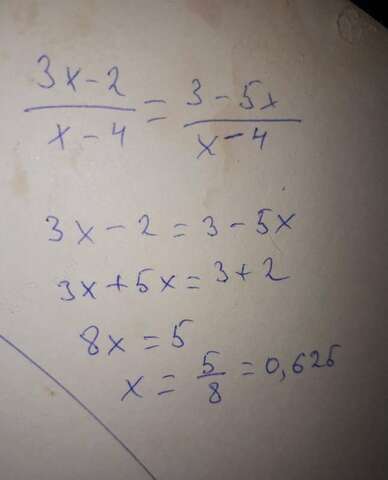 3x-2/x-4 = 3-5x/x-4
3x-2=3-5x
3x+5x=3+2
8x=5
x=5/8=0,625